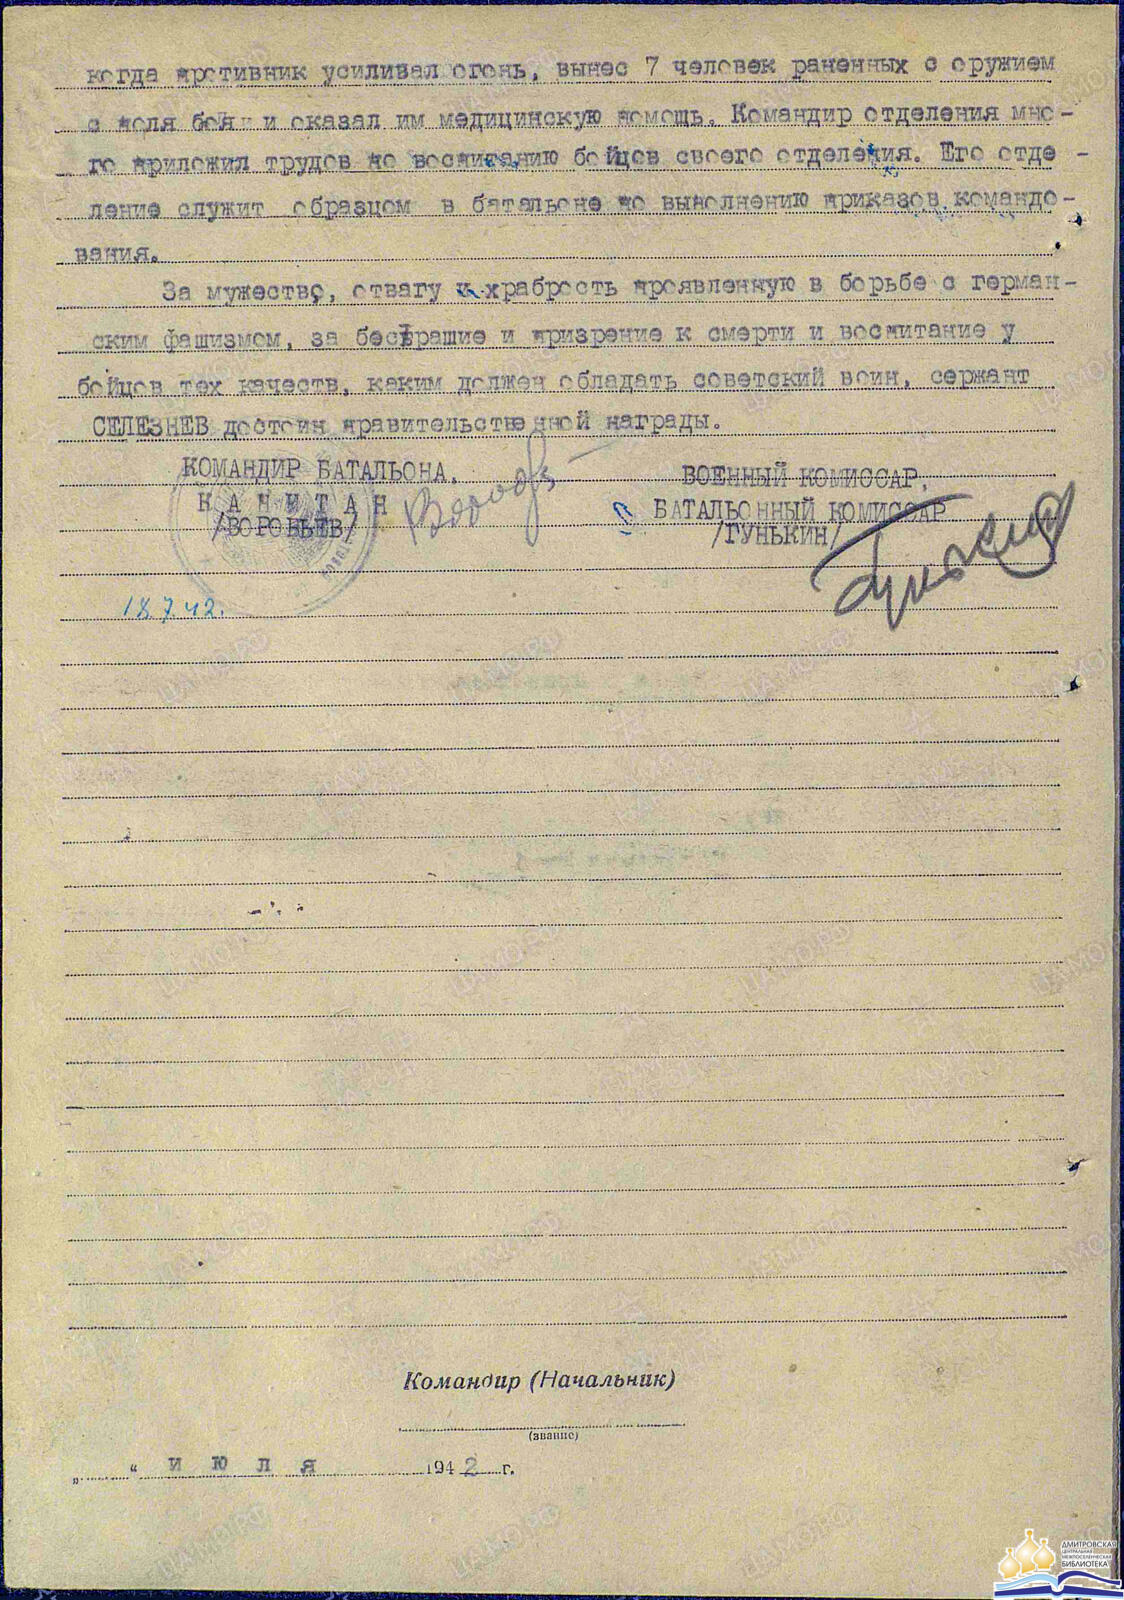 когда противник усиливал огонь, вынес 7 человек раненных с оружием
с поля боя и оказал им медицинскую помощь. Командир отделения мно-
го приложил трудов по воспитанию бойцов своего отделения. Его отде-
ление служит образцом в батальоне по выполнению приказов командо-
вания.
За мужество, отвагу и храбрость проявленную в борьбе с герман-
ским фашизмом, за бесстрашие и призрение к смерти и воспитание у
бойцов тех качеств, каким должен обладать советский воин, сержант
СЕЛЕЗНЕВ достоин правительственной награды.
КОМАНДИР БАТАЛЬОНА. ВОЕННЫЙ КОМИССАР.
КАПИТАН БАТАЛЬОННЫЙ КОМИССАР
/ВОРОБЬЕВ/ /ГУНЬКИН/
18.7.42.
Командир (Начальник)
(звание)
„ “ июля 1942 г.
ДМИТРОВСКАЯ
ЦЕНТРАЛЬНАЯ
МЕЖПОСЕЛЕНЧЕСКАЯ
БИБЛИОТЕКА